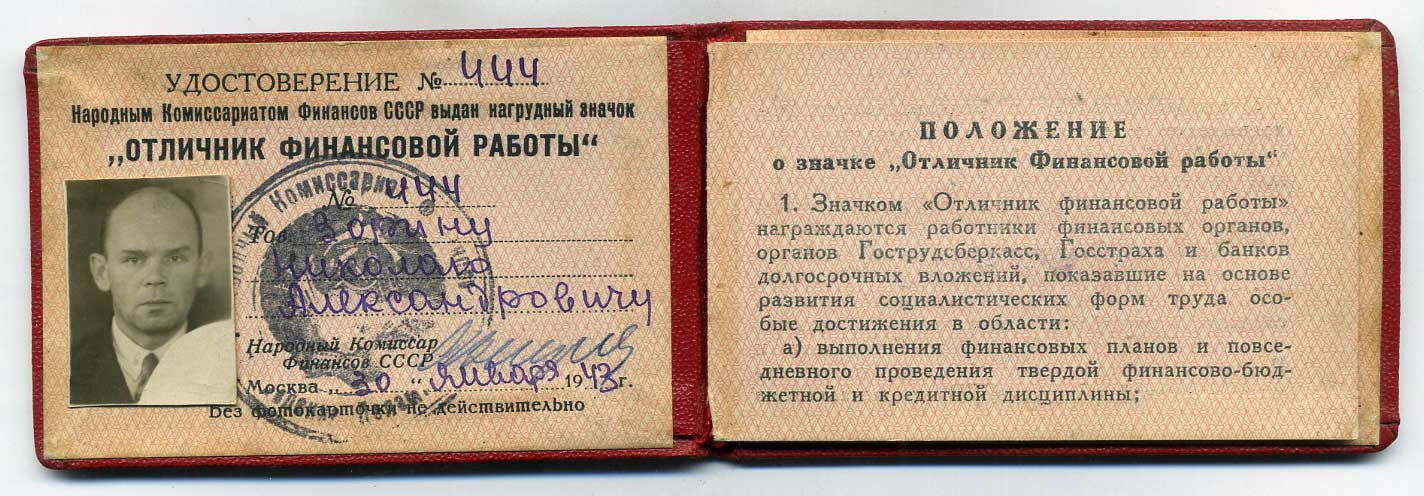 УДОСТОВЕРЕНИЕ № 444
Народным Комиссариатом Финансов СССР выдан нагрудный значок
„ОТЛИЧНИК ФИНАНСОВОЙ РАБОТЫ“
№ 444
Тов. Зорину
Николаю
Александровичу
Народный Комиссар
Финансов СССР
Москва „30“ января 1943 г.
Без фотокарточки не действительно
Комиссариат
ПОЛОЖЕНИЕ
о значке „Отличник Финансовой работы“
1. Значком «Отличник финансовой работы»
награждаются работники финансовых органов,
органов Гострудсберкасс, Госстраха и банков
долгосрочных вложений, показавшие на основе
развития социалистических форм труда осо-
бые достижения в области:
а) выполнения финансовых планов и повсе-
дневного проведения твердой финансово-бюд-
жетной и кредитной дисциплины;